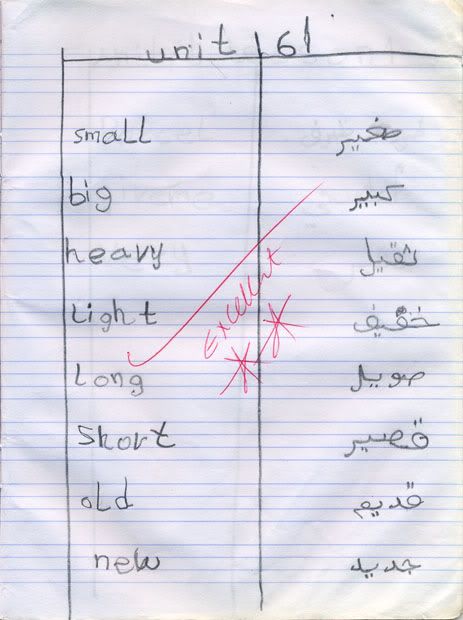 unit |6|
small صغير
big كبير
heavy ثقيل
Light خفيف
Excellent
Long صويل
Short قصير
old قديم
new جديد